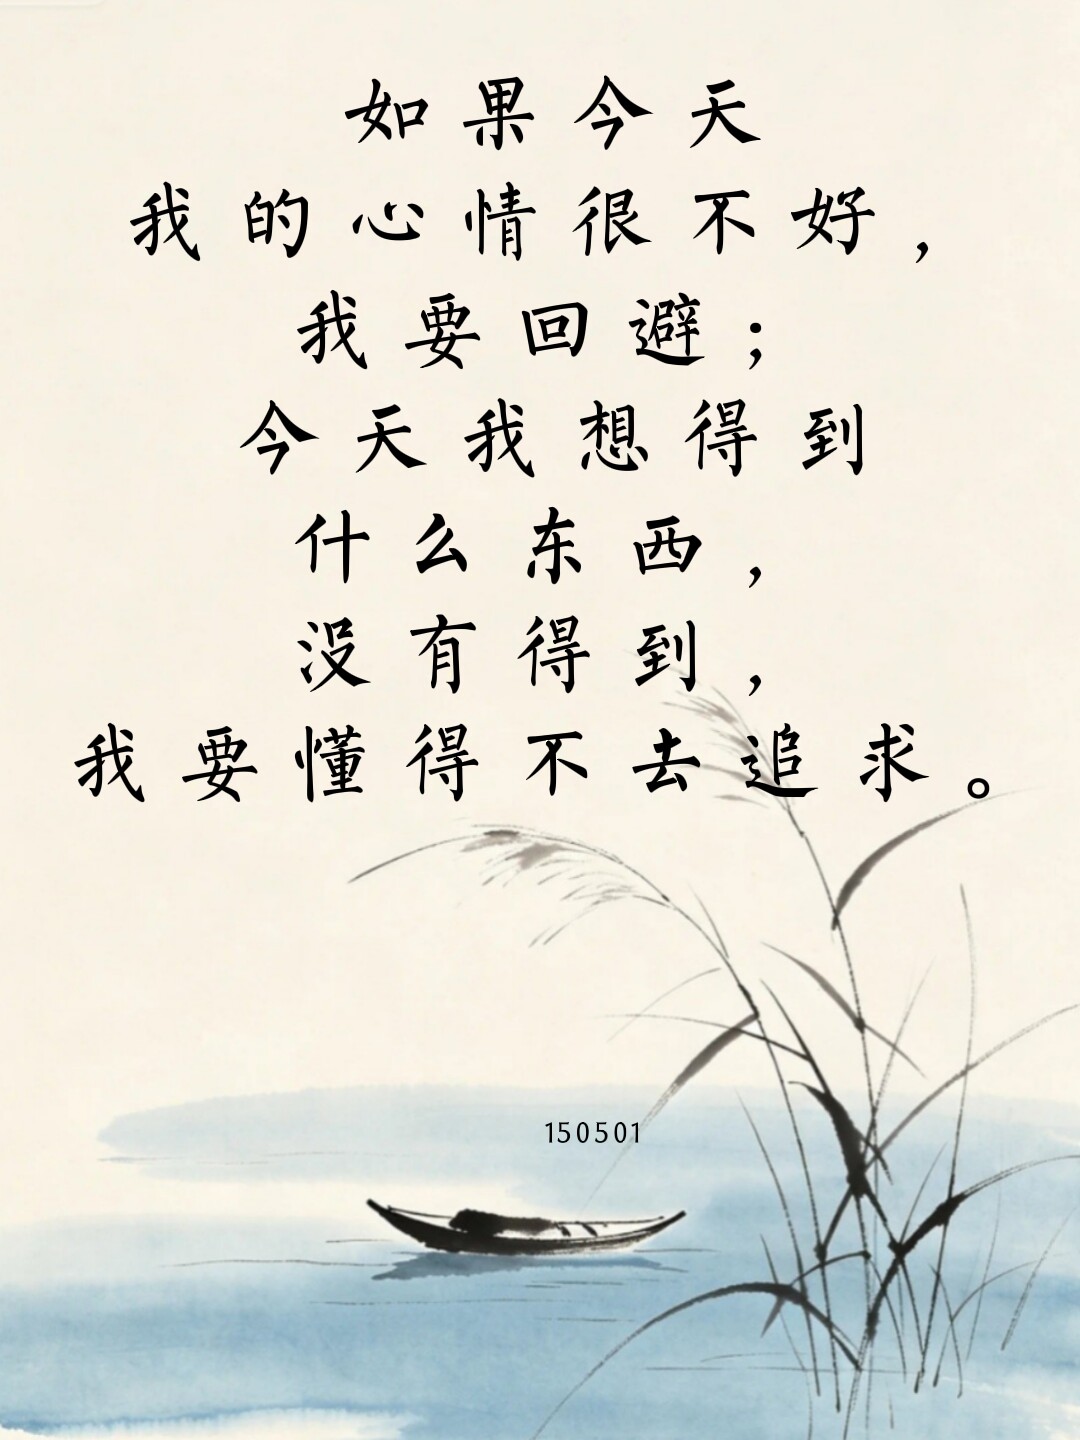 如果今天
我的心情很不好，
我要回避；
今天我想得到
什么东西，
没有得到，
我要懂得不去追求。
150501